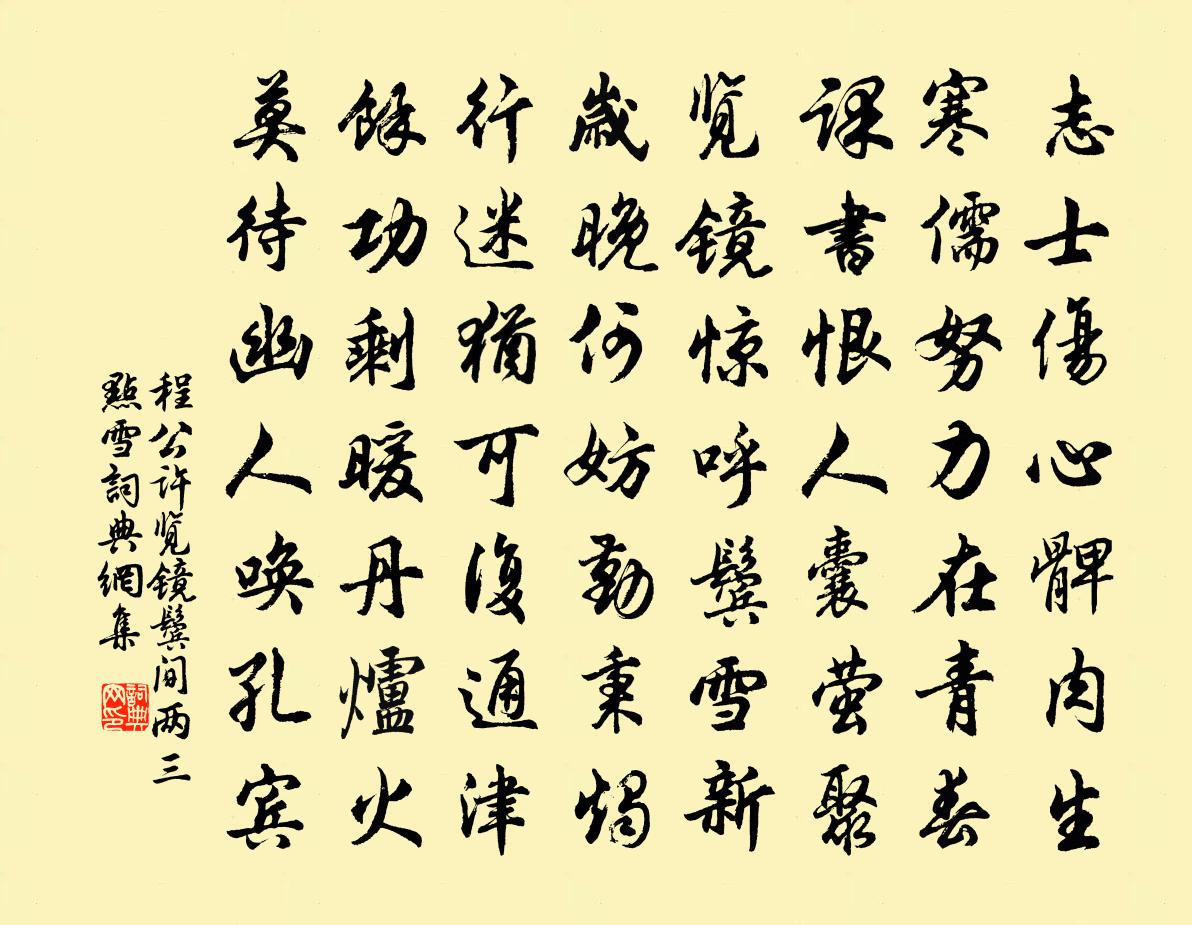 志士傷心髀肉生
寒儒努力在青春
課書恨人囊萤聚
览镜惊呼鬓雪新
歲晚何妨勤秉燭
行迷猶可復通津
餘功剩暖丹爐火
莫待幽人唤孔宾
程公许览镜鬓间两三
點雪詞典網集
詞典网印